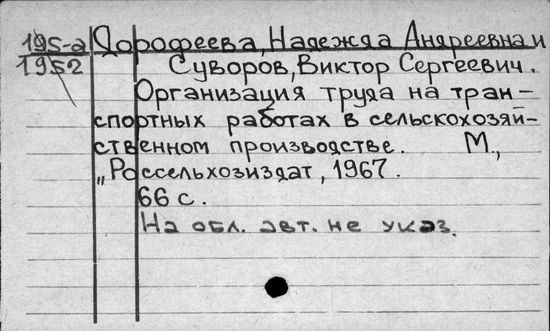 195-а Дорофеева, Надежда Андреевна и
1952 Суворов, Виктор Сергеевич.
Организация труда на тран-
спортных работах в сельскохозяй-
ственном производстве. М.,
„Россельхозиздат, 1967.
66 с.
На обл. авт. не указ.